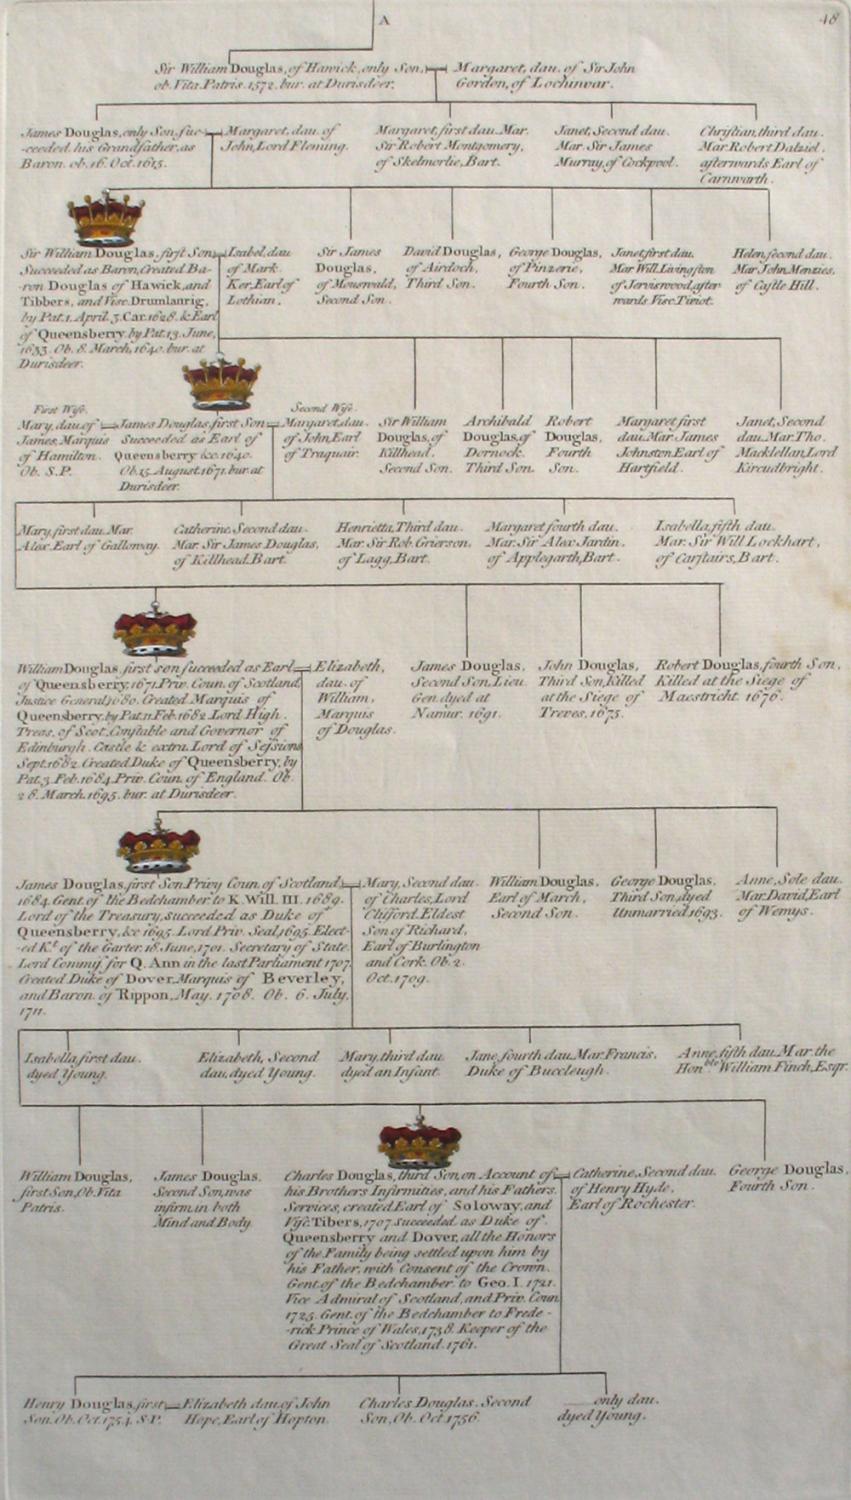 A
48
Sir William Douglas, of Hawick, only Son,
ob. Vita Patris. 1572. bur. at Durisdeer.
Margaret, dau. of Sir John
Gordon, of Lochinvar.
James Douglas, only Son, suc-
-ceeded his Grandfather, as
Baron. ob. 16. Oct. 1615.
Margaret, dau. of
John, Lord Fleming.
Margaret, first dau. Mar.
Sir Robert Montgomery,
of Skelmorlie, Bart.
Janet, Second dau.
Mar. Sir James
Murray, of Cockpool.
Chrystian, third dau.
Mar. Robert Dalziel,
afterwards Earl of
Carnwarth.
Sir William Douglas, first Son,
Succeeded as Baron, Created Ba-
ron Douglas of Hawick, and
Tibbers, and Visc. Drumlanrig,
by Pat. 1. April, 3. Car. 1628. & Earl
of Queensberry by Pat. 13. June,
1633. Ob. 8. March, 1640. bur. at
Durisdeer.
Isabel, dau.
of Mark
Ker, Earl of
Lothian.
Sir James
Douglas,
of Mouswald,
Second Son.
David Douglas,
of Airdoch,
Third Son.
George Douglas,
of Pinzerie,
Fourth Son.
Janet first dau.
Mar. Will. Livingston
of Jerviswood, after
wards Visc. Tiriot.
Helen, second dau.
Mar. John Menzies,
of Castle Hill.
First Wife.
Mary, dau. of
James, Marquis
of Hamilton.
Ob. S.P.
James Douglas, first Son
Succeeded as Earl of
Queensberry &c. 1640.
Ob. 15. August, 1671. bur. at
Durisdeer.
Second Wife.
Margaret, dau.
of John, Earl
of Traquair.
Sir William
Douglas, of
Killhead.
Second Son.
Archibald
Douglas, of
Dornock.
Third Son.
Robert
Douglas,
Fourth
Son.
Margaret first
dau. Mar. James
Johnston Earl of
Hartfield.
Janet, Second
dau. Mar. Tho.
Macklellan, Lord
Kircudbright.
Mary, first dau. Mar.
Alex. Earl of Galloway.
Catherine, Second dau.
Mar. Sir James Douglas,
of Killhead, Bart.
Henrietta, Third dau.
Mar. Sir Rob. Grierson,
of Lagg, Bart.
Margaret fourth dau.
Mar. Sir Alex. Jardin,
of Applegarth, Bart.
Isabella, fifth dau.
Mar. Sir Will. Lockhart,
of Carstairs, Bart.
William Douglas, first son succeeded as Earl
of Queensberry, 1671. Priv. Coun. of Scotland,
Justice General, 1680. Created Marquis of
Queensberry, by Pat. 11. Feb. 1682. Lord High
Treas. of Scot. Constable and Governor of
Edinburgh Castle & extra. Lord of Sessions
Sept. 1682. Created Duke of Queensberry, by
Pat. 3. Feb. 1684. Priv. Coun. of England. Ob.
28. March, 1695. bur. at Durisdeer.
Elizabeth,
dau. of
William,
Marquis
of Douglas.
James Douglas,
Second Son, Lieu.
Gen. dyed at
Namur. 1691.
John Douglas,
Third Son, Killed
at the Siege of
Treves, 1675.
Robert Douglas, fourth Son,
Killed at the Siege of
Maestricht. 1676.
James Douglas, first Son, Privy Coun. of Scotland,
1684. Gent. of the Bedchamber to K. Will. III. 1689.
Lord of the Treasury, succeeded as Duke of
Queensberry, &c. 1695. Lord Priv. Seal, 1695. Elect-
-ed Kt. of the Garter, 18. June, 1701. Secretary of State.
Lord Commiss. for Q. Ann in the last Parliament 1707.
Created Duke of Dover, Marquis of Beverley,
and Baron of Rippon, May. 1708. Ob. 6. July,
1711.
Mary, Second dau.
of Charles, Lord
Clifford, Eldest
Son of Richard,
Earl of Burlington
and Cork. Ob. 2.
Oct. 1709.
William Douglas,
Earl of March,
Second Son.
George Douglas,
Third Son, dyed
Unmarried 1693.
Anne, Sole dau.
Mar. David, Earl
of Wemys.
Isabella, first dau.
dyed Young.
Elizabeth, Second
dau. dyed Young.
Mary, third dau.
dyed an Infant.
Jane, fourth dau. Mar. Francis,
Duke of Buccleugh.
Anne, fifth dau. Mar. the
Honble. William Finch, Esqr.
William Douglas,
first Son, Ob. Vita
Patris.
James Douglas,
Second Son, was
infirm in both
Mind and Body.
Charles Douglas, third Son, on Account of
his Brothers Infirmities, and his Fathers
Services, created Earl of Soloway, and
Visc. Tibers, 1707. succeeded as Duke of
Queensberry and Dover, all the Honors
of the Family being settled upon him by
his Father, with Consent of the Crown.
Gent. of the Bedchamber to Geo. I. 1721.
Vice Admiral of Scotland, and Priv. Coun.
1725. Gent. of the Bedchamber to Frede-
-rick Prince of Wales, 1738. Keeper of the
Great Seal of Scotland. 1761.
Catherine, Second dau.
of Henry Hyde,
Earl of Rochester.
George Douglas,
Fourth Son.
Henry Douglas, first
Son. Ob. Oct. 1754. S.P.
Elizabeth dau. of John
Hope, Earl of Hopton.
Charles Douglas. Second
Son, Ob. Oct 1756.
only dau.
dyed Young.